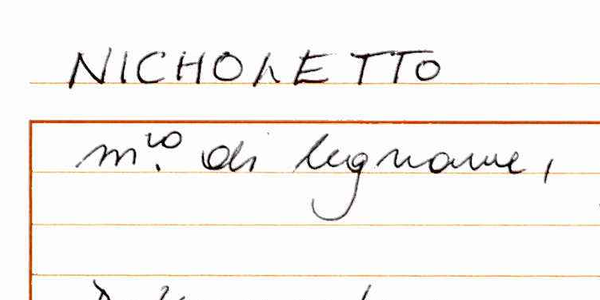 NICHOLETTO
m.ro di legname,